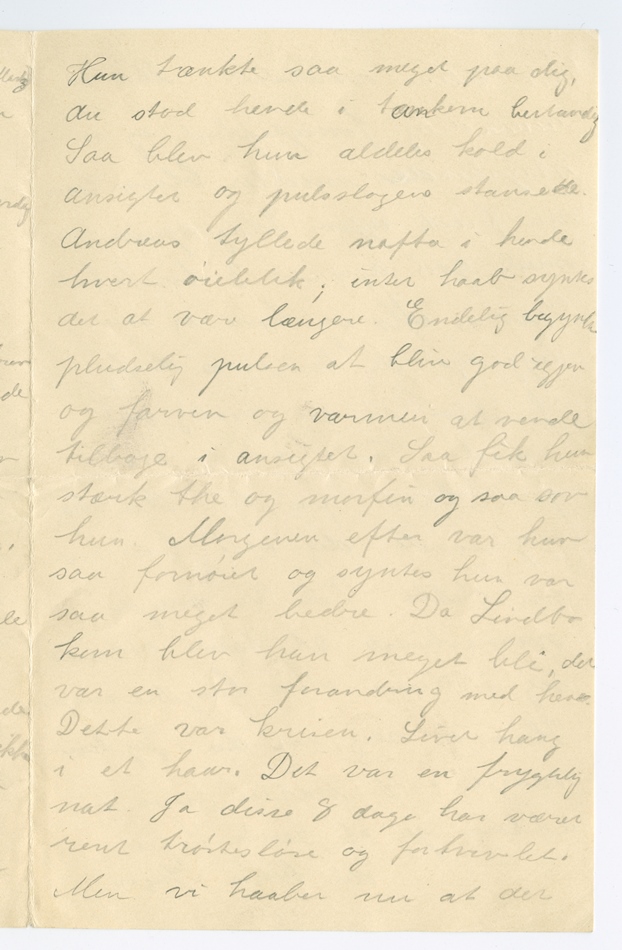 Hun tænkte saa meget paa dig,
du stod hende i tankern bestandig
Saa blev hun aldeles kold i
ansigtet og pulsslagene stansede.
Andreas fyllede nafta i hende
hvert øieblik, intet haab syntes
det at være længere. Endelig begynte
pludselig pulsen at blive god igjen
og farven og varmen at vende
tilbage i ansigtet. Saa fik hun
stærk the og morfin og saa sov
hun. Morgenen efter var hun
saa fornøiet og syntes hun var
saa meget bedre. Da Lindbo
kom blev han meget bli, det
var en stor forandring med hende
Dette var krisen. Livet hang
i et haar. Det var en frygtelig
nat. Ja disse 8 dage har været
rent trøstesløse og fortvivlet.
Men vi haaber nu at det